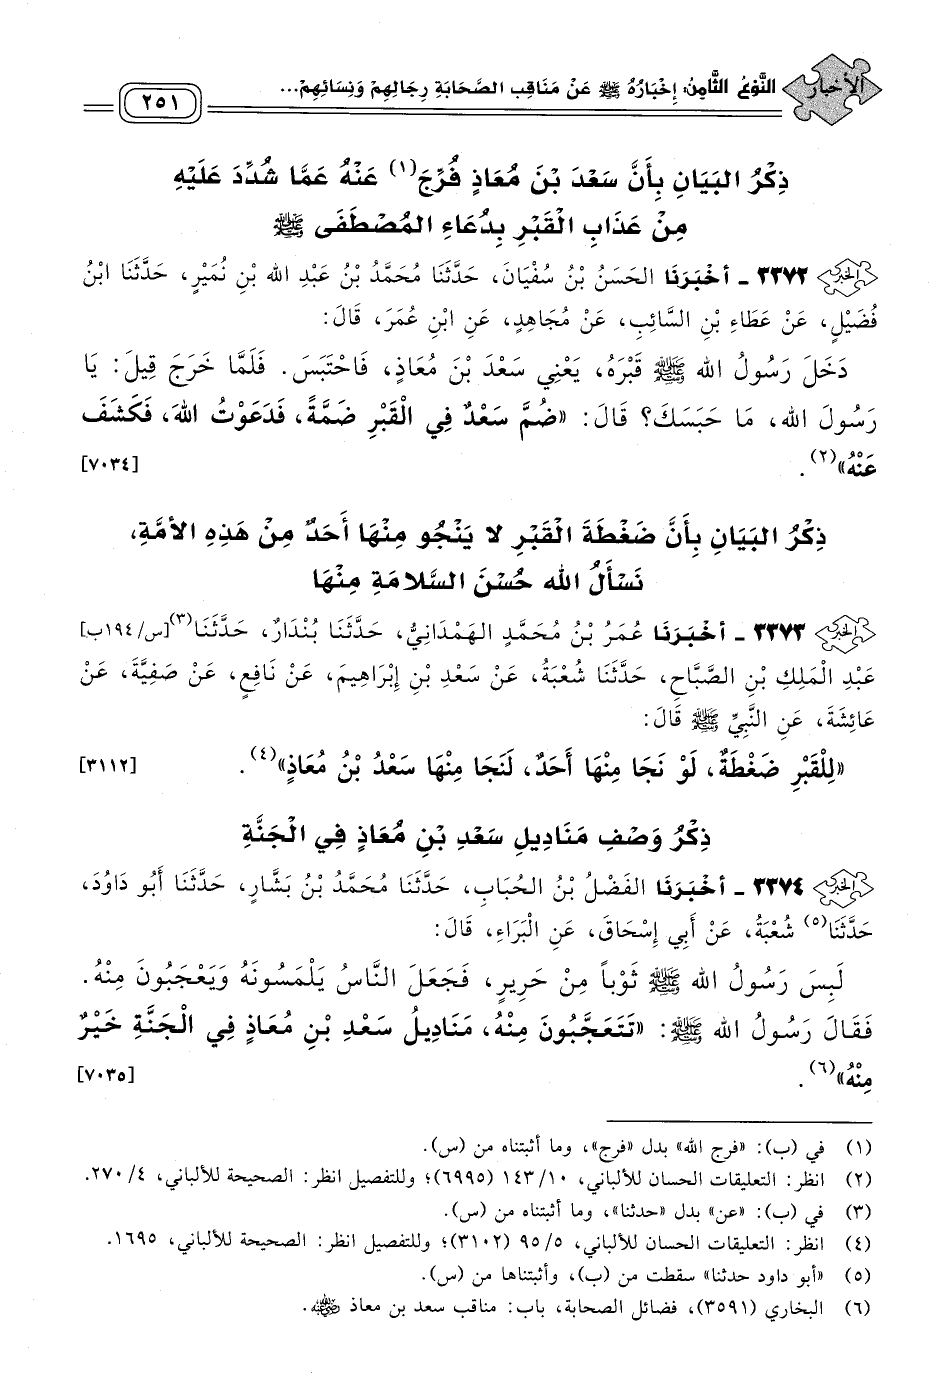 الأخبار
النَّوْعُ الثَّامِنُ: إِخْبَارُهُ ﷺ عَنْ مَنَاقِبِ الصَّحَابَةِ رِجَالِهِمْ وَنِسَائِهِمْ...
٢٥١
ذِكْرُ البَيَانِ بِأَنَّ سَعْدَ بْنَ مُعَاذٍ فُرِّجَ(١) عَنْهُ عَمَّا شُدِّدَ عَلَيْهِ
مِنْ عَذَابِ الْقَبْرِ بِدُعَاءِ المُصْطَفَى ﷺ
الخبر ٣٣٧٢ - أخْبَرَنَا الحَسَنُ بْنُ سُفْيَانَ، حَدَّثَنَا مُحَمَّدُ بْنُ عَبْدِ الله بْنِ نُمَيْرٍ، حَدَّثَنَا ابْنُ
فُضَيْلٍ، عَنْ عَطَاءِ بْنِ السَّائِبِ، عَنْ مُجَاهِدٍ، عَنِ ابْنِ عُمَرَ، قَالَ:
دَخَلَ رَسُولُ الله ﷺ قَبْرَهُ، يَعْنِي سَعْدَ بْنَ مُعَاذٍ، فَاحْتَبَسَ. فَلَمَّا خَرَجَ قِيلَ: يَا
رَسُولَ الله، مَا حَبَسَكَ؟ قَالَ: «ضُمَّ سَعْدٌ فِي الْقَبْرِ ضَمَّةً، فَدَعَوْتُ اللهَ، فَكَشَفَ
عَنْهُ»(٢). [٧٠٣٤]
ذِكْرُ البَيَانِ بِأَنَّ ضَغْطَةَ الْقَبْرِ لا يَنْجُو مِنْهَا أَحَدٌ مِنْ هَذِهِ الأمَّةِ،
نَسْأَلُ الله حُسْنَ السَّلامَةِ مِنْهَا
الخبر ٣٣٧٣ - أخْبَرَنَا عُمَرُ بْنُ مُحَمَّدٍ الهَمْدَانِيُّ، حَدَّثَنَا بُنْدَارٌ، حَدَّثَنَا(٣)[س/١٩٤ب]
عَبْدِ الْمَلِكِ بْنِ الصَّبَّاحِ، حَدَّثَنَا شُعْبَةُ، عَنْ سَعْدِ بْنِ إِبْرَاهِيمَ، عَنْ نَافِعٍ، عَنْ صَفِيَّةَ، عَنْ
عَائِشَةَ، عَنِ النَّبِيِّ ﷺ قَالَ:
«لِلْقَبْرِ ضَغْطَةٌ، لَوْ نَجَا مِنْهَا أَحَدٌ، لَنَجَا مِنْهَا سَعْدُ بْنُ مُعَاذٍ»(٤). [٣١١٢]
ذِكْرُ وَصْفِ مَنَادِيلِ سَعْدِ بْنِ مُعَاذٍ فِي الْجَنَّةِ
الخبر ٣٣٧٤ - أخْبَرَنَا الفَضْلُ بْنُ الحُبَابِ، حَدَّثَنَا مُحَمَّدُ بْنُ بَشَّارٍ، حَدَّثَنَا أَبُو دَاوُدَ،
حَدَّثَنَا(٥) شُعْبَةُ، عَنْ أَبِي إِسْحَاقَ، عَنِ البَرَاءِ، قَالَ:
لَبِسَ رَسُولُ الله ﷺ ثَوْباً مِنْ حَرِيرٍ، فَجَعَلَ النَّاسُ يَلْمَسُونَهُ وَيَعْجَبُونَ مِنْهُ.
فَقَالَ رَسُولُ الله ﷺ: «تَتَعَجَّبُونَ مِنْهُ، مَنَادِيلُ سَعْدِ بْنِ مُعَاذٍ فِي الْجَنَّةِ خَيْرٌ
مِنْهُ»(٦). [٧٠٣٥]
(١) في (ب): «فرج الله» بدل «فرج»، وما أثبتناه من (س).
(٢) انظر: التعليقات الحسان للألباني، ١٤٣/١٠ (٦٩٩٥)؛ وللتفصيل انظر: الصحيحة للألباني، ٢٧٠/٤.
(٣) في (ب): «عن» بدل «حدثنا»، وما أثبتناه من (س).
(٤) انظر: التعليقات الحسان للألباني، ٩٥/٥ (٣١٠٢)؛ وللتفصيل انظر: الصحيحة للألباني، ١٦٩٥.
(٥) «أبو داود حدثنا» سقطت من (ب)، وأثبتناها من (س).
(٦) البخاري (٣٥٩١)، فضائل الصحابة، باب: مناقب سعد بن معاذ رضي الله عنه.